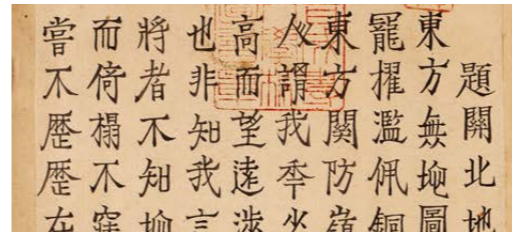 題關北地
東方無地圖
罷擢濫佩銅
東方關防嶺
人謂我秊少
高而望遠涉
也非知我言
將者不知地
而倚榻不窺
嘗不歷歷在